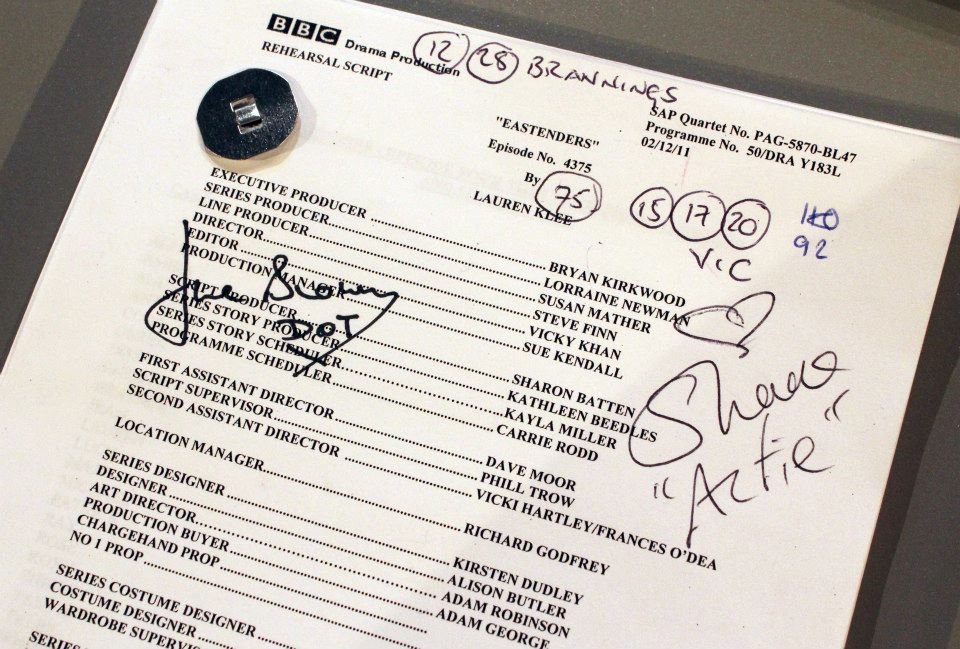 BBC Drama Production 12 28 BRANNINGS
REHEARSAL SCRIPT
SAP Quartet No. PAG-5870-BL47
Programme No. 50/DRA Y183L
02/12/11
"EASTENDERS"
Episode No. 4375
By 75 15 17 20
LAUREN KLEE
VIC
92
EXECUTIVE PRODUCER ........ BRYAN KIRKWOOD
SERIES PRODUCER ........ LORRAINE NEWMAN
LINE PRODUCER ........ SUSAN MATHER
DIRECTOR ........ STEVE FINN
EDITOR ........ VICKY KHAN
PRODUCTION MANAGER ........ SUE KENDALL
SCRIPT PRODUCER ........ SHARON BATTEN
SERIES STORY PRODUCER ........ KATHLEEN BEEDLES
SERIES STORY SCHEDULER ........ KAYLA MILLER
PROGRAMME SCHEDULER ........ CARRIE RODD
June Brown
DOT
Shane
"Artie"
FIRST ASSISTANT DIRECTOR ........ DAVE MOOR
SCRIPT SUPERVISOR ........ PHILL TROW
SECOND ASSISTANT DIRECTOR ........ VICKI HARTLEY/FRANCES O'DEA
LOCATION MANAGER ........ RICHARD GODFREY
SERIES DESIGNER ........ KIRSTEN DUDLEY
DESIGNER ........ ALISON BUTLER
ART DIRECTOR ........ ADAM ROBINSON
PRODUCTION BUYER ........ ADAM GEORGE
CHARGEHAND PROP ........
NO 1 PROP ........
SERIES COSTUME DESIGNER ........
COSTUME DESIGNER ........
WARDROBE SUPERVIS
SERIES